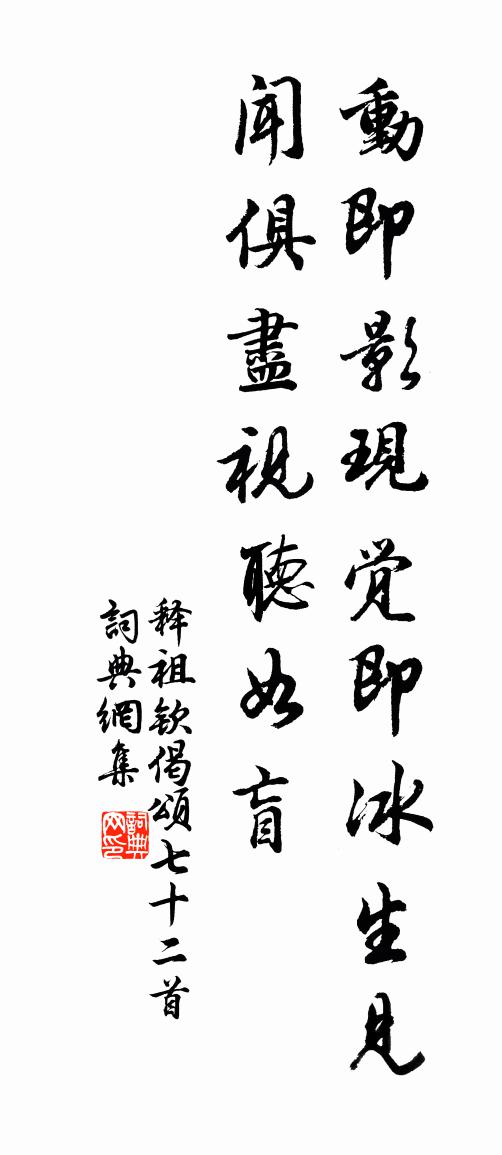 動即影現覺即冰生見
聞俱盡視聽如盲
释祖欽偈頌七十二首
詞典網集
詞典网印